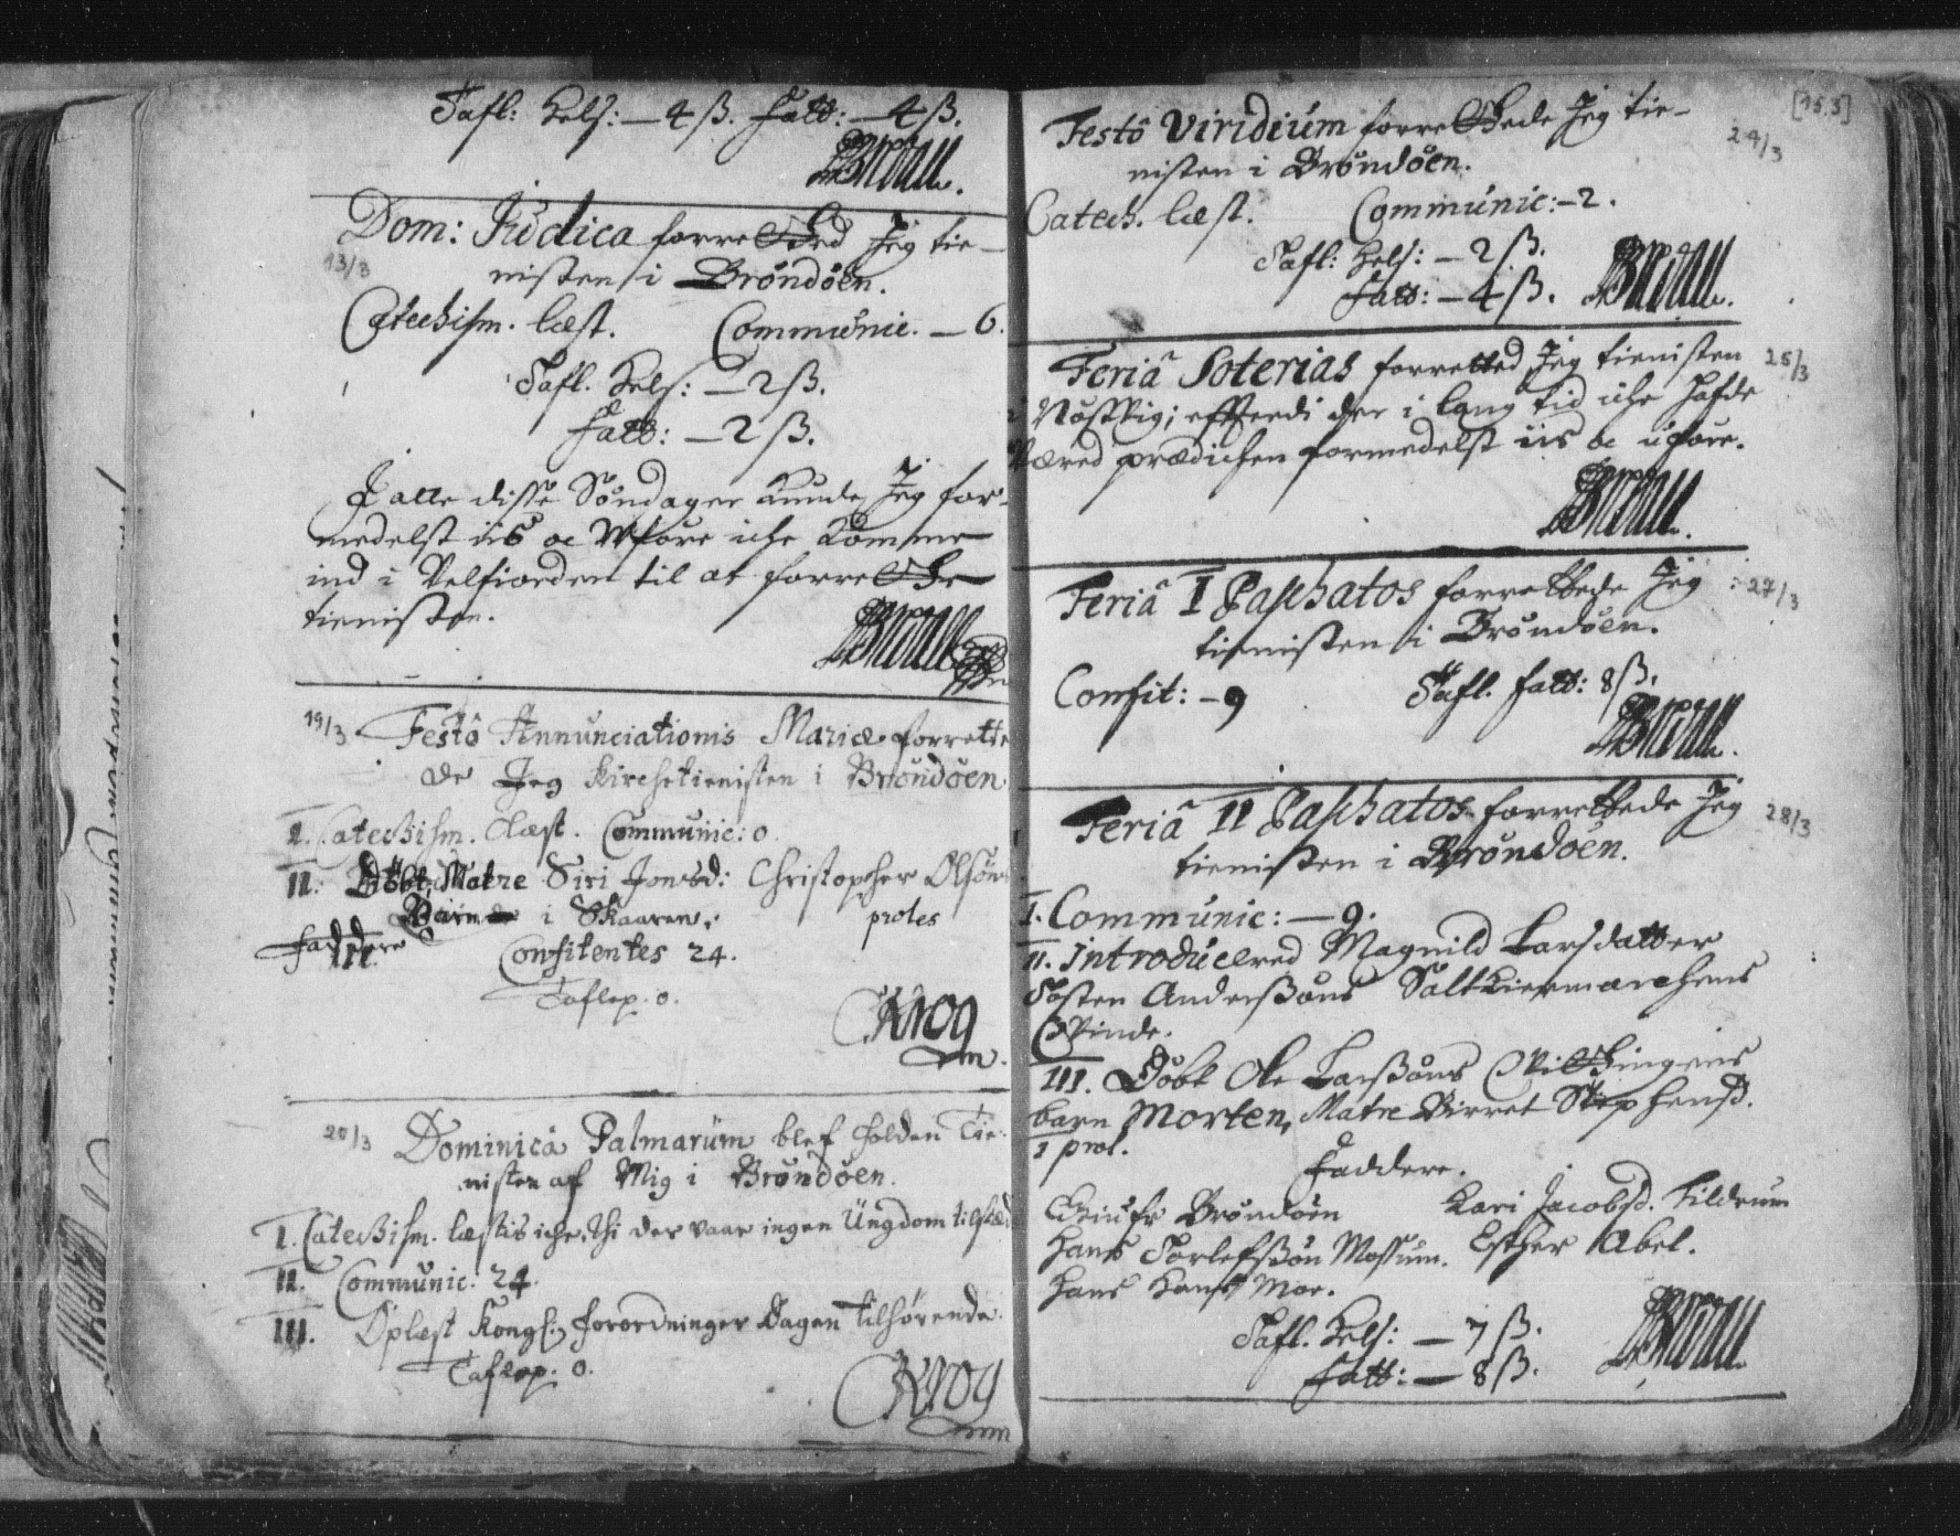 Tafl: Hels: – 4 ß. Fatt: – 4 ß.
Dom: Judica forretted Jeg tie-
13/3
nisten i Brøndöen.
Catechism. læst. Communic. – 6.
Tafl. Hels: – 2 ß.
Fatt: – 2 ß.
J alle disse Søndager kunde Jeg for-
medelst iis oc Wføre iche komme
ind i Velfiorden til at forrette
tienisten.
19/3 Festô Annunciationis Mariæ forrette
de Jeg Kirchetienisten i Brøndöen
I. Catechism. læst. Communic: 0.
II. Döbt, Matre Siri Jonsd: Christopher Olsøns
Barn i Skaaren. proles
Faddere
III. Confitentes 24.
Taflep. 0.
Krog
20/3 Dominicâ Palmarum blef holden Tie-
nisten af Mig i Brøndöen.
I. Catechism. læstis iche, thi der vaar ingen Ungdom tilstæd
II. Communic: 24.
III. Oplæst Kongl: Forordninger Dagen tilhörende.
Taflep. 0.
Krog
[153]
Festô Viridium forrettede Jeg tie-
24/3
nisten i Brøndöen.
Catech. læst. Communic: – 2.
Tafl: Hels: – 2 ß.
Fatt: – 4 ß.
Feriâ Soterias forretted Jeg tienisten 25/3
i Nøstvig; effterdi der i lang tid iche hafde
Været prædichen formedelst iis oc uføre.
Feriâ I Paschatos forrettede Jeg 27/3
tienisten i Brøndöen.
Confit: – 9 Tafl. Fatt: 8 ß.
Feriâ II Paschatos forrettede Jeg 28/3
tienisten i Brøndöen.
I. Communic: – 9.
II. Introducered Magnild Larsdatter
Tosten Anderßøns Saltkiermarchens
Qvinde.
III. Döbt Ole Larßøns Qvittingens
barn Morten, Matre Birret Stephensd.
1 prol.
Faddere.
Brøndöen Kari Jacobsd. Tildrum
Hans Torlefsßøn Mossum. Esther Abel.
Hans Hansß Moe.
Tafl. Hels: – 7 ß.
Fatt: – 8 ß.